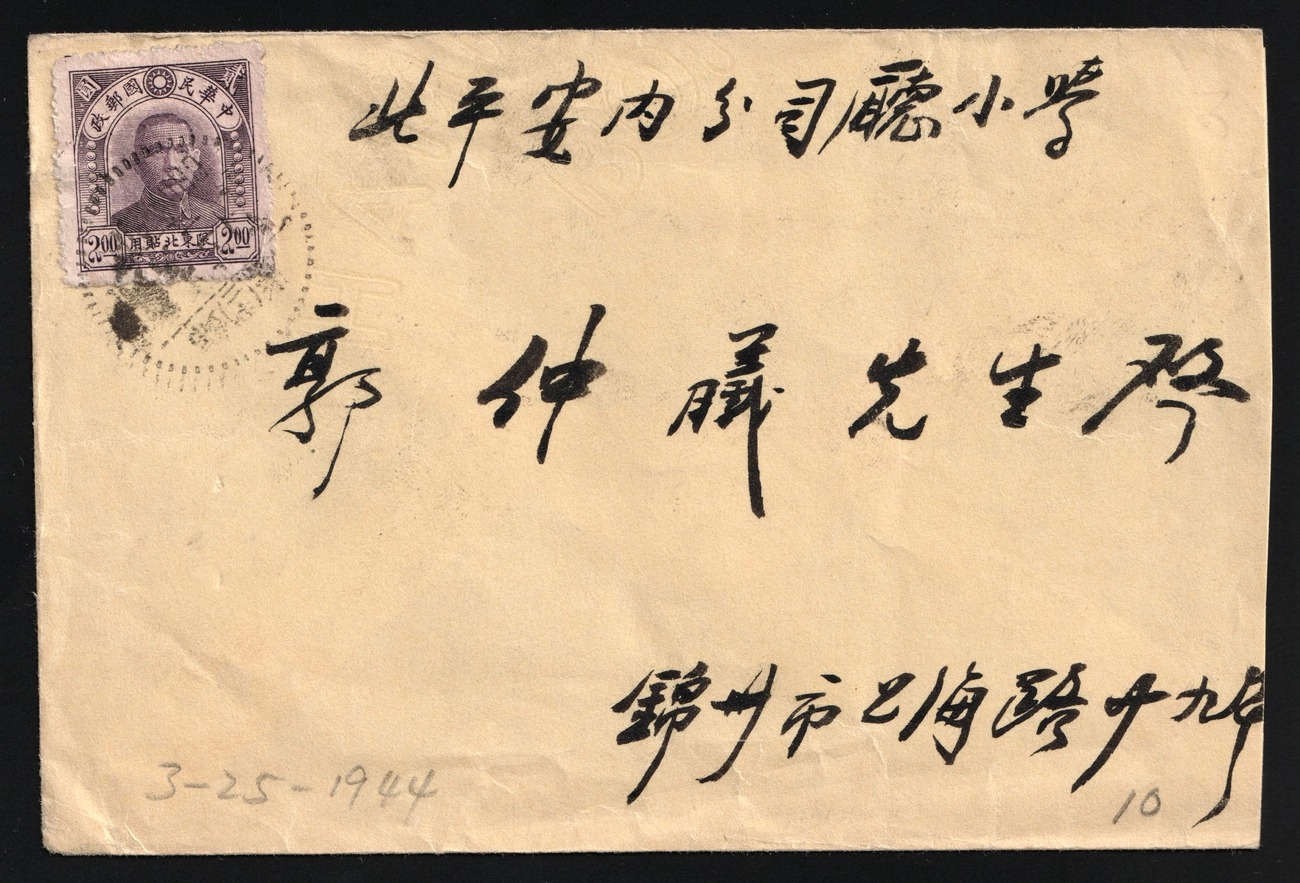 中華民國郵政
貳圓
2.00 限東北貼用 2.00
北平安內分司廳小學
郭仲義先生啓
錦州市上海路廿九号
3-25-1944
10